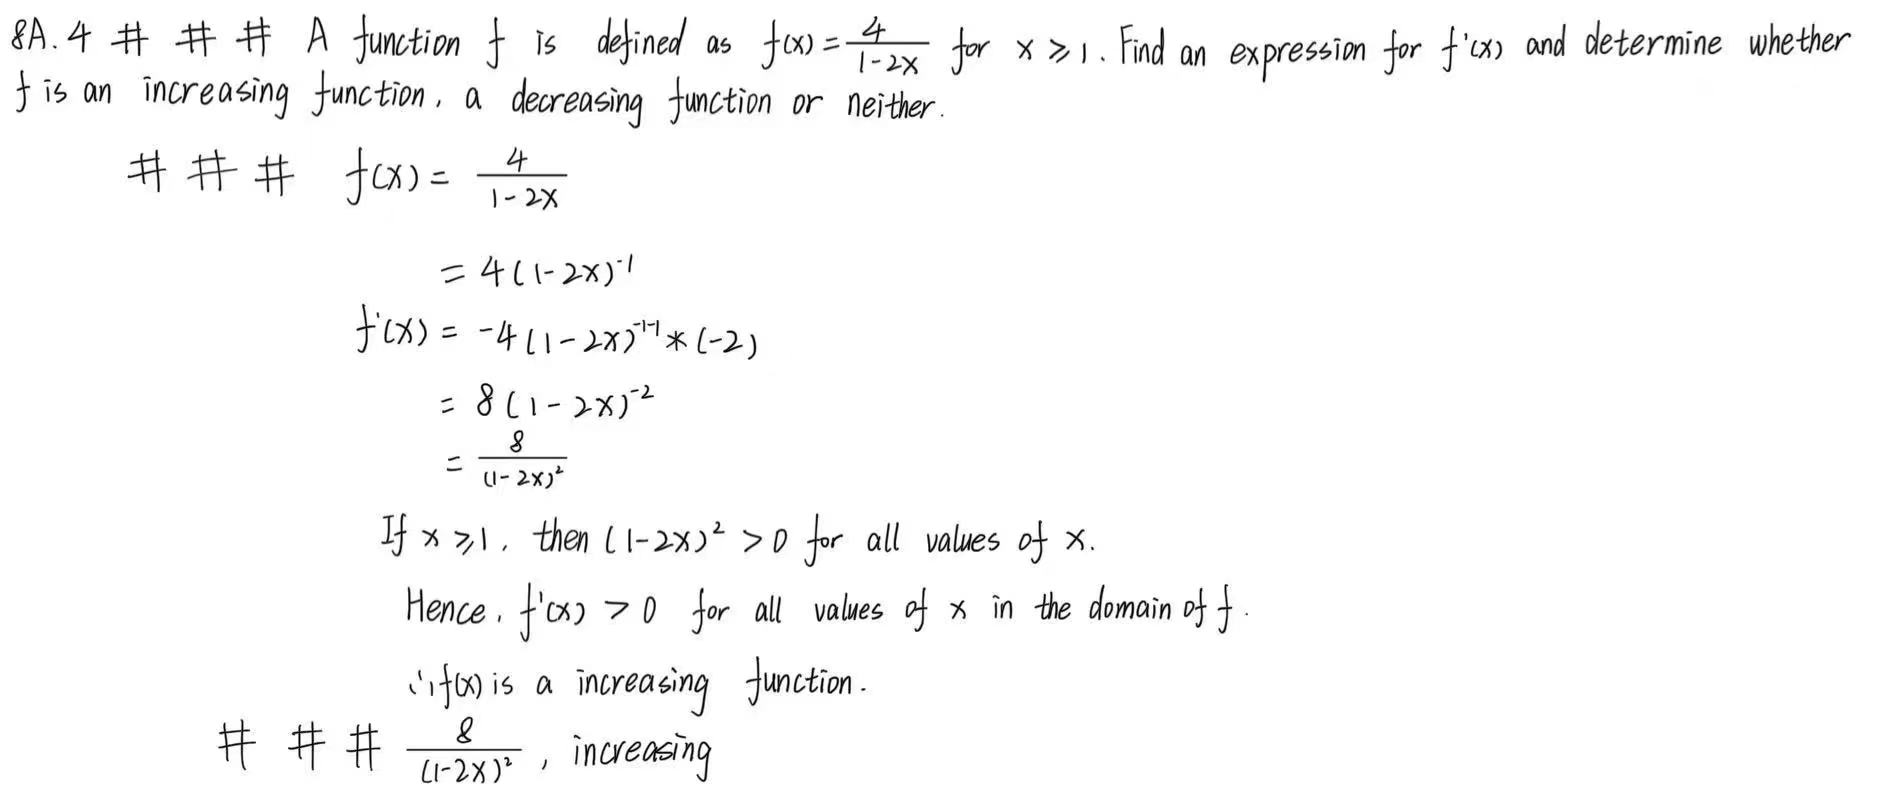 8A.4 # # # A function f is defined as f(x) = 4/(1-2x) for x ⩾ 1. Find an expression for f'(x) and determine whether
f is an increasing function, a decreasing function or neither.
# # # f(x) = 4/(1-2x)
= 4(1-2x)⁻¹
f'(x) = -4(1-2x)⁻¹⁻¹ * (-2)
= 8(1-2x)⁻²
= 8/(1-2x)²
If x ⩾ 1, then (1-2x)² > 0 for all values of x.
Hence, f'(x) > 0 for all values of x in the domain of f.
∴ f(x) is a increasing function.
# # # 8/(1-2x)², increasing